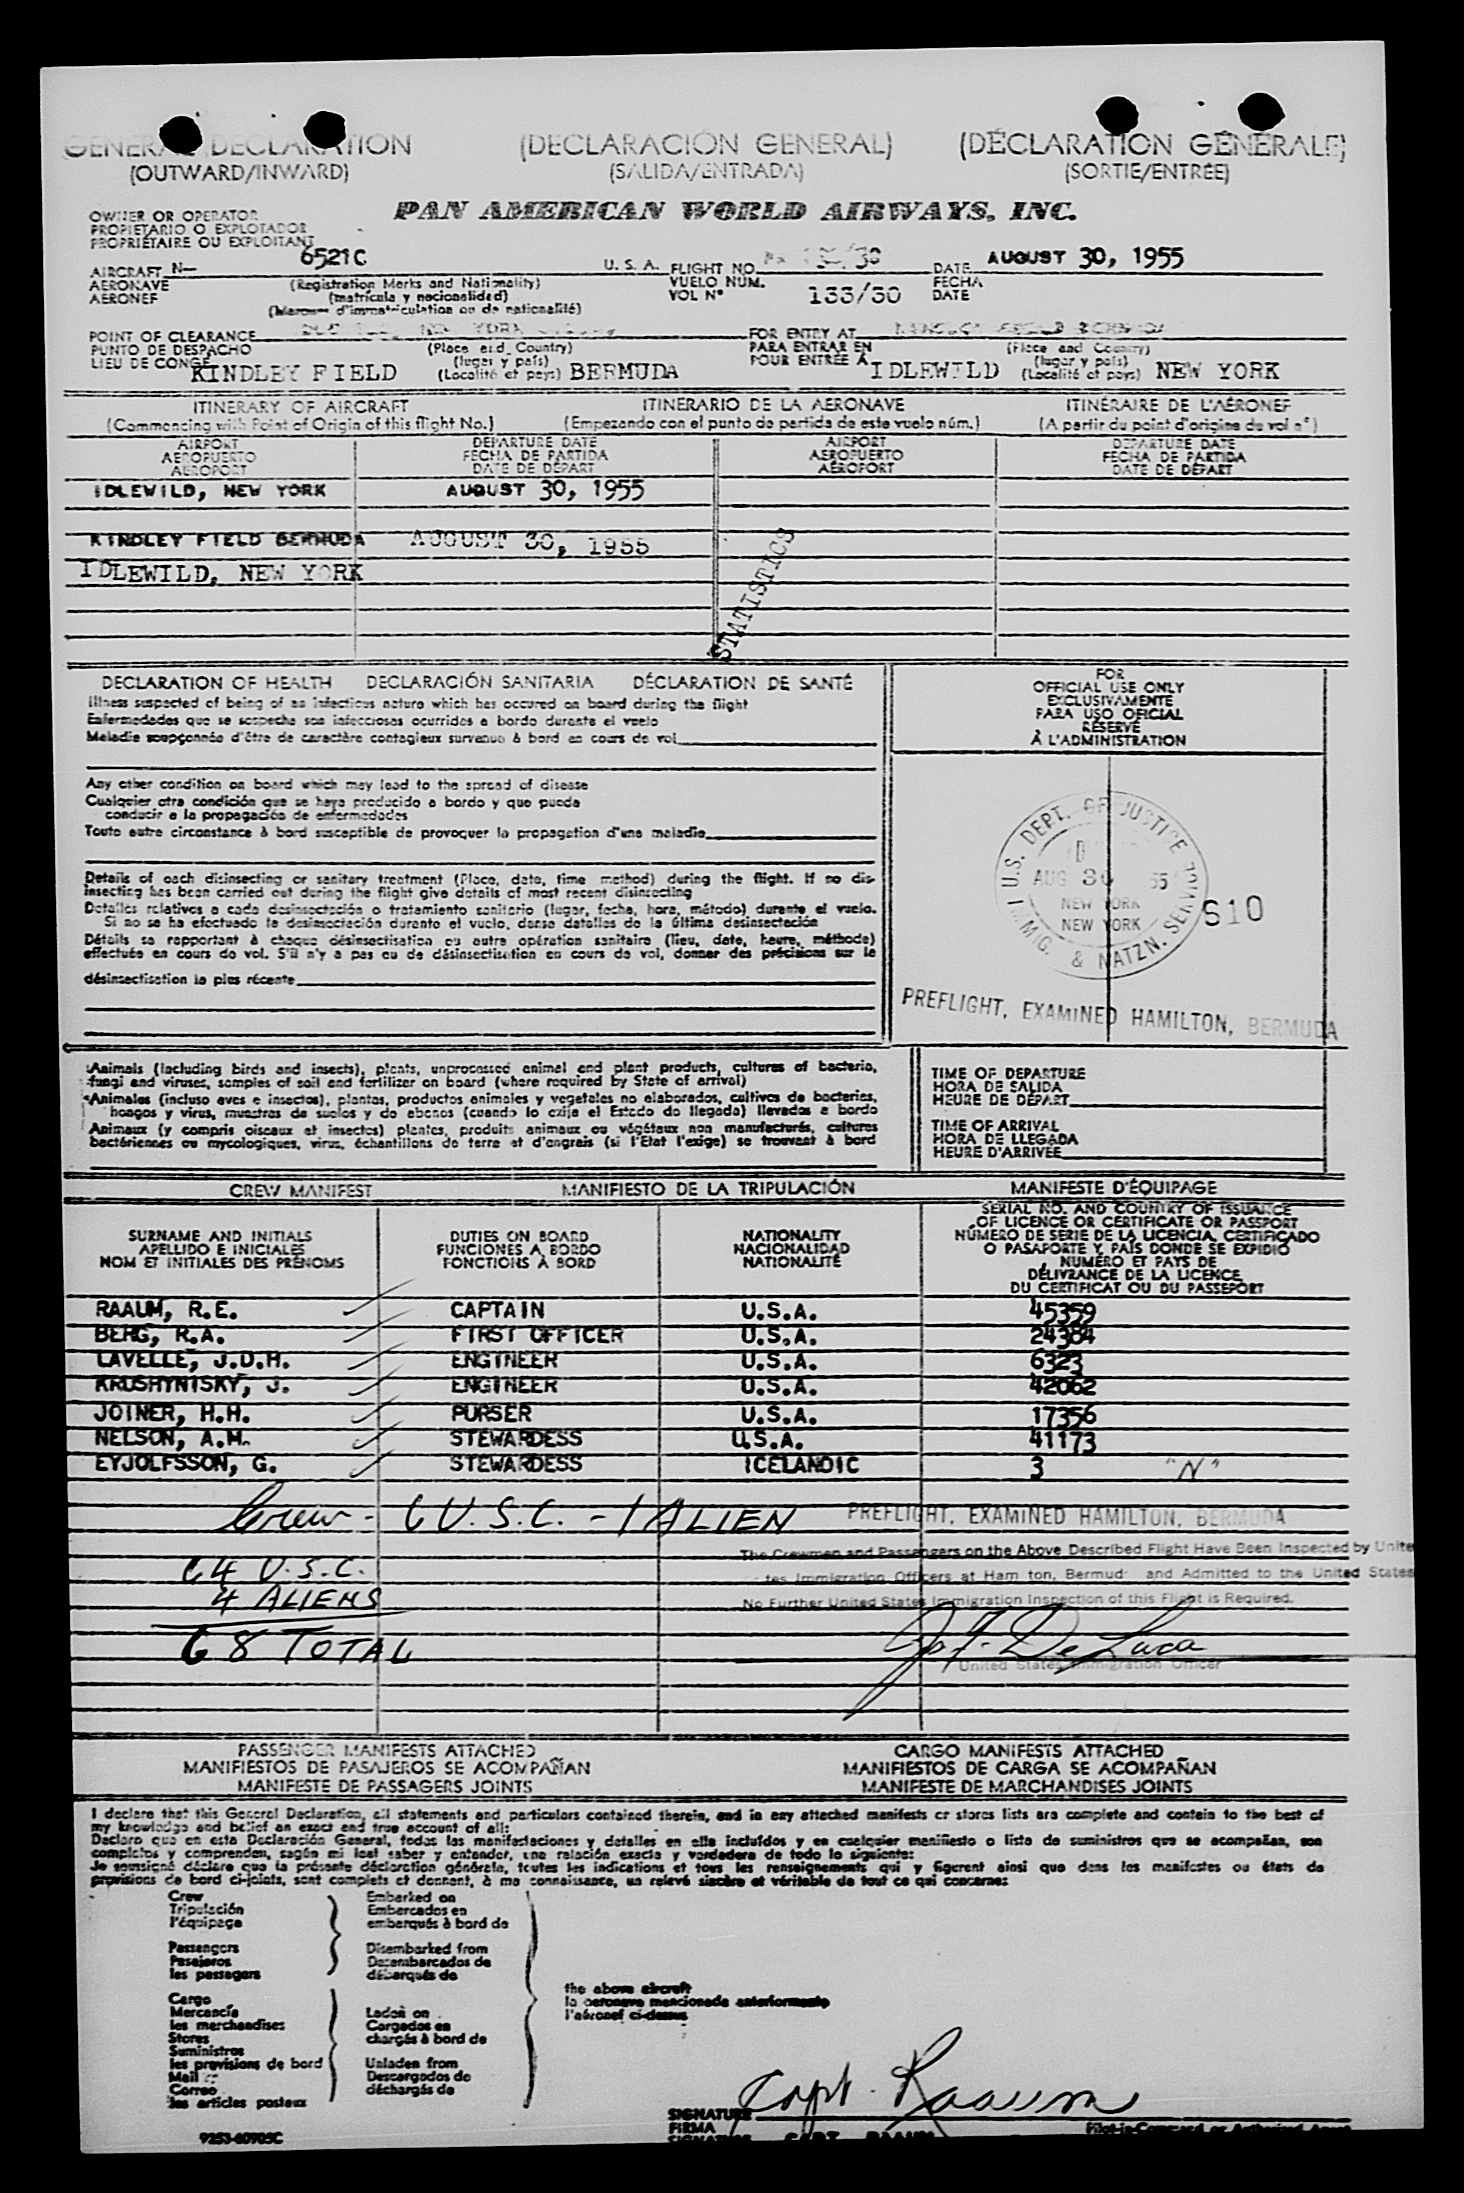 GENERAL DECLARATION (DECLARACIÓN GENERAL) (DÉCLARATION GÉNÉRALE)
(OUTWARD/INWARD) (SALIDA/ENTRADA) (SORTIE/ENTRÉE)
OWNER OR OPERATOR
PROPIETARIO O EXPLOTADOR
PROPRIÉTAIRE OU EXPLOITANT
PAN AMERICAN WORLD AIRWAYS, INC.
AIRCRAFT N— 6521C U. S. A. FLIGHT NO. /30 DATE AUGUST 30, 1955
AERONAVE (Registration Marks and Nationality) VUELO NUM. FECHA
AERONEF (matrícula y nacionalidad) VOL N° 133/30 DATE
(Marques d'immatriculation ou de nationalité)
POINT OF CLEARANCE FOR ENTRY AT
PUNTO DE DESPACHO (Place and Country) PARA ENTRAR EN (Place and Country)
LIEU DE CONGÉ KINDLEY FIELD (lugar y país) (Localité et pays) BERMUDA POUR ENTRÉE À IDLEWILD (lugar y país) (Localité et pays) NEW YORK
ITINERARY OF AIRCRAFT ITINERARIO DE LA AERONAVE ITINÉRAIRE DE L'AÉRONEF
(Commencing with Point of Origin of this flight No.) (Empezando con el punto de partida de este vuelo núm.) (A partir du point d'origine du vol n°)
AIRPORT DEPARTURE DATE AIRPORT DEPARTURE DATE
AEROPUERTO FECHA DE PARTIDA AEROPUERTO FECHA DE PARTIDA
AÉROPORT DATE DE DÉPART AÉROPORT DATE DE DÉPART
IDLEWILD, NEW YORK AUGUST 30, 1955
KINDLEY FIELD BERMUDA AUGUST 30, 1955
IDLEWILD, NEW YORK
STATISTICS
DECLARATION OF HEALTH DECLARACIÓN SANITARIA DÉCLARATION DE SANTÉ
Illness suspected of being of an infectious nature which has occured on board during the flight
Enfermedades que se sospecha son infecciosas ocurridas a bordo durante el vuelo
Maladie soupçonnée d'être de caractère contagieux survenue à bord en cours de vol
Any other condition on board which may lead to the spread of disease
Cualquier otra condición que se haya producido a bordo y que pueda
conducir a la propagación de enfermedades
Toute autre circonstance à bord susceptible de provoquer la propagation d'une maladie
Details of each disinsecting or sanitary treatment (Place, date, time method) during the flight. If no dis-
insecting has been carried out during the flight give details of most recent disinsecting
Detalles relativos a cada desinsectación o tratamiento sanitario (lugar, fecha, hora, método) durante el vuelo.
Si no se ha efectuado la desinsectación durante el vuelo, dense detalles de la última desinsectación
Détails se rapportant à chaque désinsectisation ou autre opération sanitaire (lieu, date, heure, méthode)
effectuée en cours de vol. S'il n'y a pas eu de désinsectisation en cours de vol, donner des précisions sur la
désinsectisation la plus récente
FOR
OFFICIAL USE ONLY
EXCLUSIVAMENTE
PARA USO OFICIAL
RÉSERVÉ
À L'ADMINISTRATION
U.S. DEPT. OF JUSTICE
AUG 30 55
NEW YORK
NEW YORK
IMMIG. & NATZN. SERVICE
S10
PREFLIGHT, EXAMINED HAMILTON, BERMUDA
Animals (including birds and insects), plants, unprocessed animal and plant products, cultures of bacteria,
fungi and viruses, samples of soil and fertilizer on board (where required by State of arrival)
Animales (incluso aves e insectos), plantas, productos animales y vegetales no elaborados, cultivos de bacterias,
hongos y virus, muestras de suelos y de abonos (cuando lo exija el Estado de llegada) llevados a bordo
Animaux (y compris oiseaux et insectes) plantes, produits animaux ou végétaux non manufacturés, cultures
bactériennes ou mycologiques, virus, échantillons de terre et d'engrais (si l'Etat l'exige) se trouvant à bord
TIME OF DEPARTURE
HORA DE SALIDA
HEURE DE DÉPART
TIME OF ARRIVAL
HORA DE LLEGADA
HEURE D'ARRIVÉE
CREW MANIFEST MANIFIESTO DE LA TRIPULACIÓN MANIFESTE D'ÉQUIPAGE
SURNAME AND INITIALS
APELLIDO E INICIALES
NOM ET INITIALES DES PRÉNOMS
DUTIES ON BOARD
FUNCIONES A BORDO
FONCTIONS À BORD
NATIONALITY
NACIONALIDAD
NATIONALITÉ
SERIAL NO. AND COUNTRY OF ISSUANCE
OF LICENCE OR CERTIFICATE OR PASSPORT
NÚMERO DE SERIE DE LA LICENCIA, CERTIFICADO
O PASAPORTE Y PAÍS DONDE SE EXPIDIÓ
NUMÉRO ET PAYS DE
DÉLIVRANCE DE LA LICENCE
DU CERTIFICAT OU DU PASSEPORT
RAAUM, R.E. CAPTAIN U.S.A. 45359
BERG, R.A. FIRST OFFICER U.S.A. 24384
LAVELLE, J.D.H. ENGINEER U.S.A. 6323
KRUSHYNISKY, J. ENGINEER U.S.A. 42062
JOINER, H.H. PURSER U.S.A. 17356
NELSON, A.M. STEWARDESS U.S.A. 41173
EYJOLFSSON, G. STEWARDESS ICELANDIC 3 "N"
Crew - 6 U.S.C. - 1 ALIEN
PREFLIGHT, EXAMINED HAMILTON, BERMUDA
The Crewmen and Passengers on the Above Described Flight Have Been Inspected by Unite
tes Immigration Officers at Ham ton, Bermud and Admitted to the United States
No Further United States Immigration Inspection of this Flight is Required.
64 U.S.C.
4 ALIENS
68 TOTAL
Jos. F. De Luca
United States Immigration Officer
PASSENGER MANIFESTS ATTACHED
MANIFIESTOS DE PASAJEROS SE ACOMPAÑAN
MANIFESTE DE PASSAGERS JOINTS
CARGO MANIFESTS ATTACHED
MANIFIESTOS DE CARGA SE ACOMPAÑAN
MANIFESTE DE MARCHANDISES JOINTS
I declare that this General Declaration, all statements and particulars contained therein, and in any attached manifests or stores lists are complete and contain to the best of
my knowledge and belief an exact and true account of all:
Declaro que en esta Declaración General, todas las manifestaciones y detalles en ella incluídos y en cualquier manifiesto o lista de suministros que se acompañan, son
completos y comprenden, según mi leal saber y entender, una relación exacta y verdadera de todo lo siguiente:
Je soussigné déclare que la présente déclaration générale, toutes les indications et tous les renseignements qui y figurent ainsi que dans les manifestes ou états de
provisions de bord ci-joints, sont complets et donnent, à ma connaissance, un relevé sincère et véritable de tout ce qui concerne:
Crew
Tripulación
l'équipage
Passengers
Pasajeros
les passagers
Cargo
Mercancía
les marchandises
Stores
Suministros
les provisions de bord
Mail
Correo
les articles postaux
Embarked on
Embarcados en
embarqués à bord de
Disembarked from
Desembarcados de
débarqués de
Laden on
Cargados en
chargés à bord de
Unladen from
Descargados de
déchargés de
the above aircraft
la aeronave mencionada anteriormente
l'aéronef ci-dessus
Capt. Raaum
SIGNATURE
FIRMA
SIGNATURE CAPT. RAAUM
Pilot-in-Command or Authorized Agent
9253-60905C